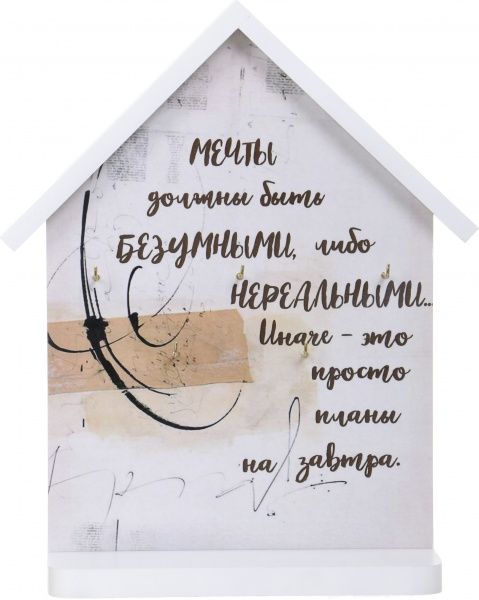 МЕЧТЫ
должны быть
БЕЗУМНЫМИ, либо
НЕРЕАЛЬНЫМИ...
Иначе - это
просто
планы
на завтра.